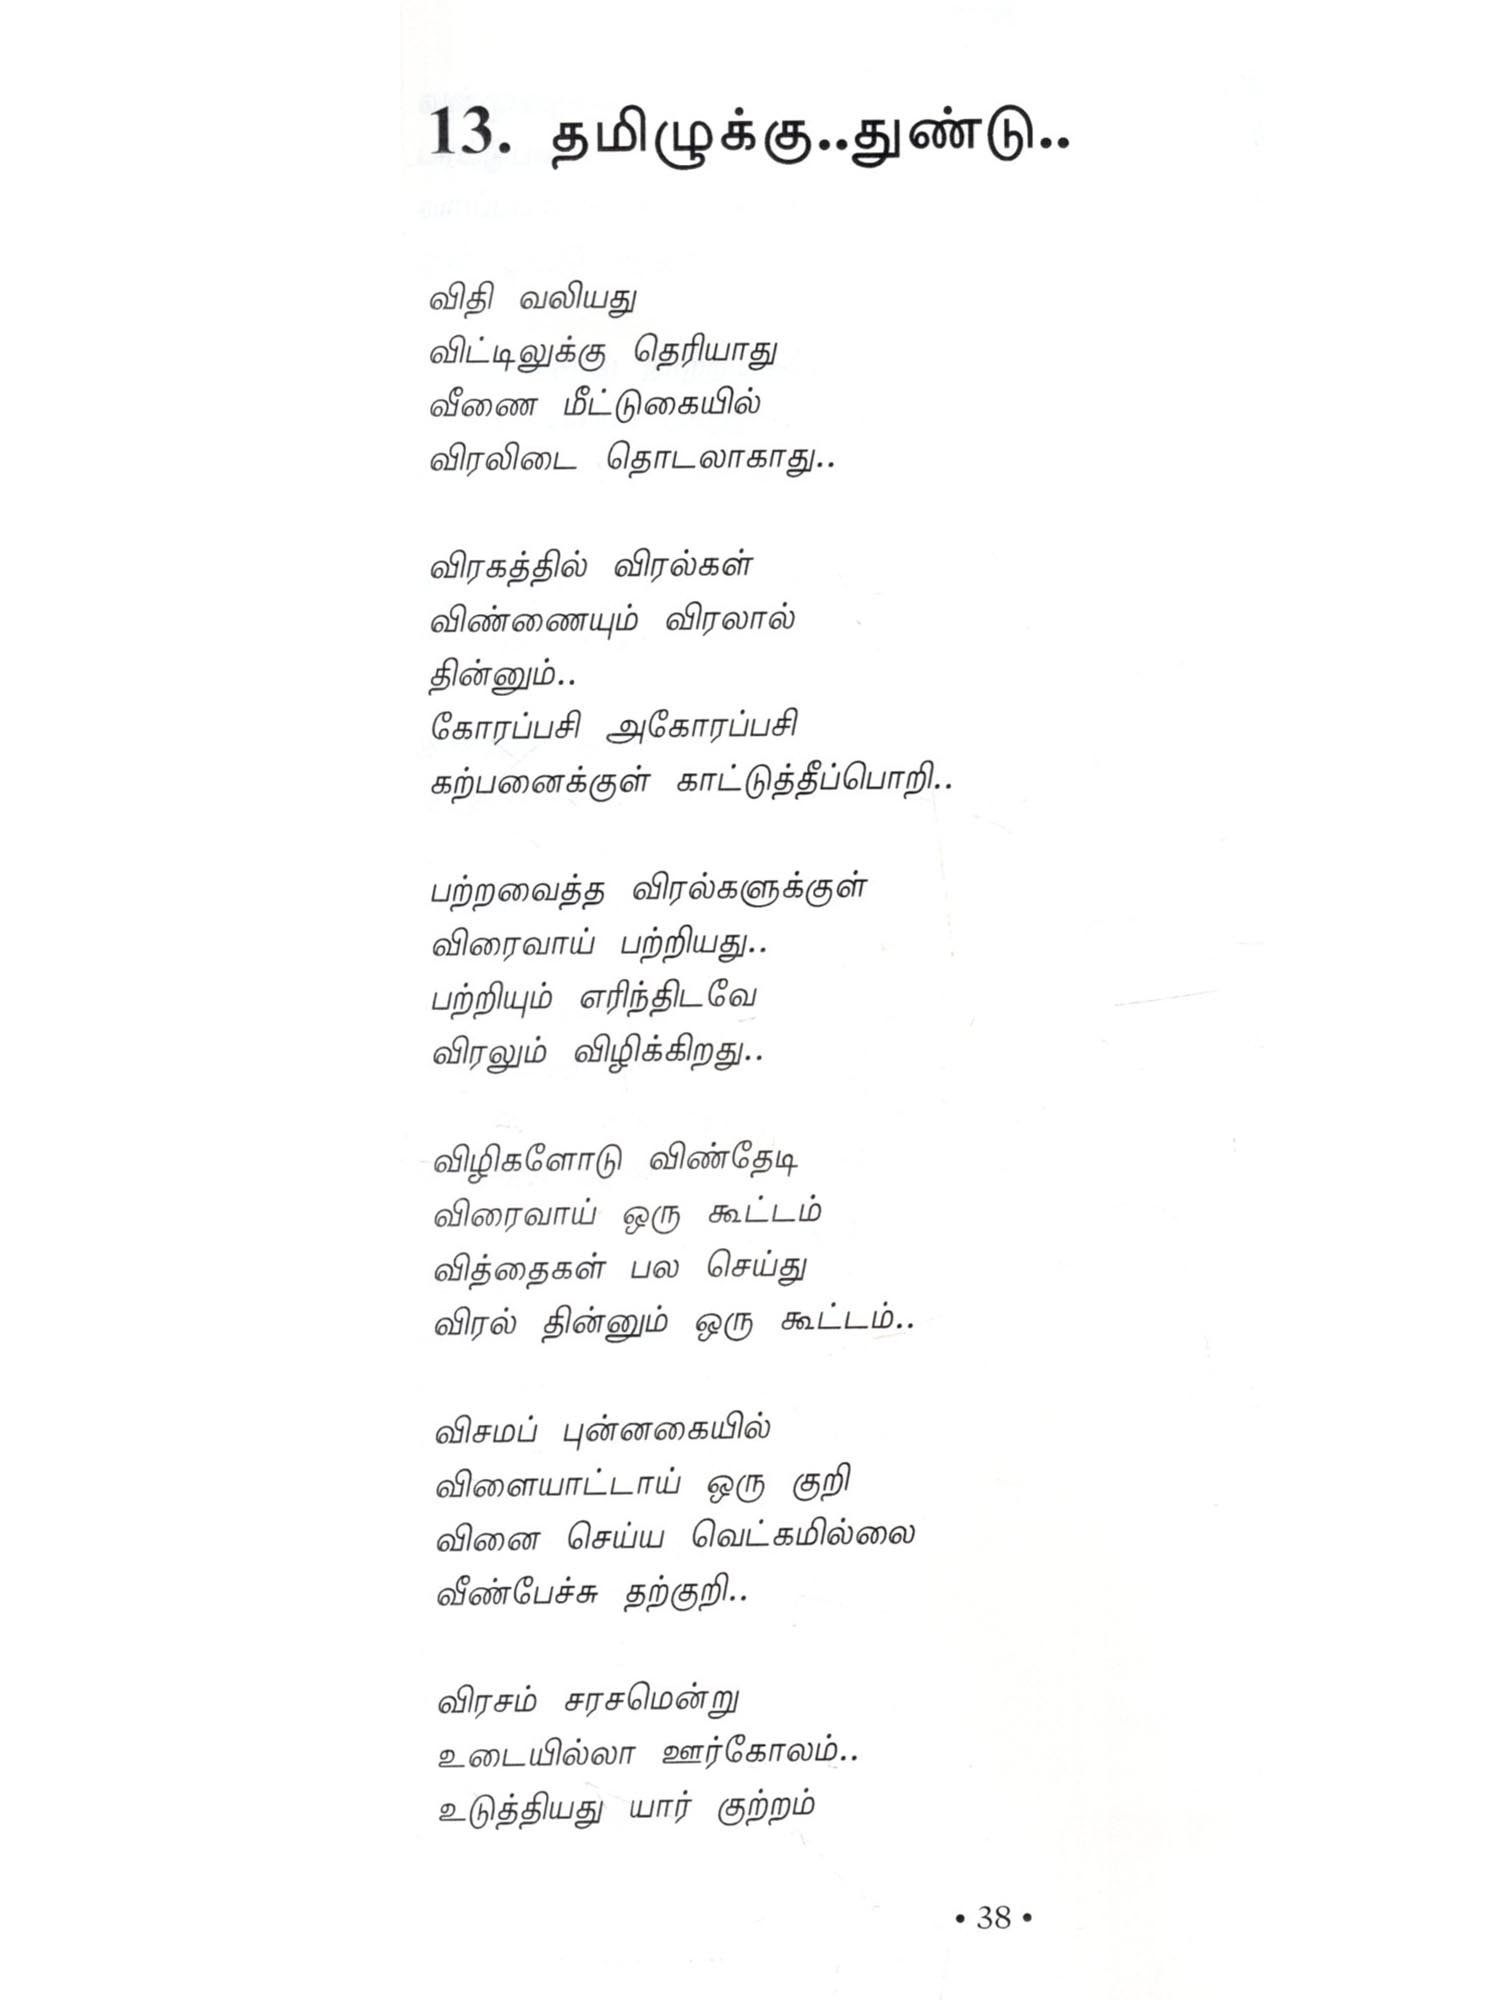 13. தமிழுக்கு..துண்டு..
விதி வலியது
விட்டிலுக்கு தெரியாது
வீணை மீட்டுகையில்
விரலிடை தொடலாகாது..
விரகத்தில் விரல்கள்
விண்ணையும் விரலால்
தின்னும்..
கோரப்பசி அகோரப்பசி
கற்பனைக்குள் காட்டுத்தீப்பொறி..
பற்றவைத்த விரல்களுக்குள்
விரைவாய் பற்றியது..
பற்றியும் எரிந்திடவே
விரலும் விழிக்கிறது..
விழிகளோடு விண்தேடி
விரைவாய் ஒரு கூட்டம்
வித்தைகள் பல செய்து
விரல் தின்னும் ஒரு கூட்டம்..
விசமப் புன்னகையில்
விளையாட்டாய் ஒரு குறி
வினை செய்ய வெட்கமில்லை
வீண்பேச்சு தற்குறி..
விரசம் சரசமென்று
உடையில்லா ஊர்கோலம்..
உடுத்தியது யார் குற்றம்
• 38 •